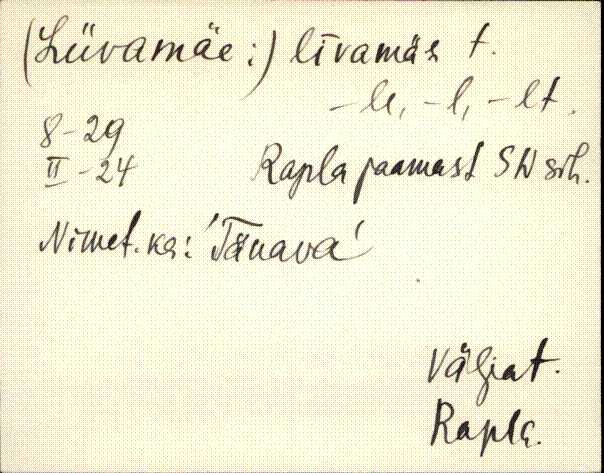 (Lüvamäe:) līvamäε t.
-le, -l, -lt.
8-29
II-24 Rapla jaamast SW sih.
Nimet. ka: 'Tänava'
Väljat.
Rapla.